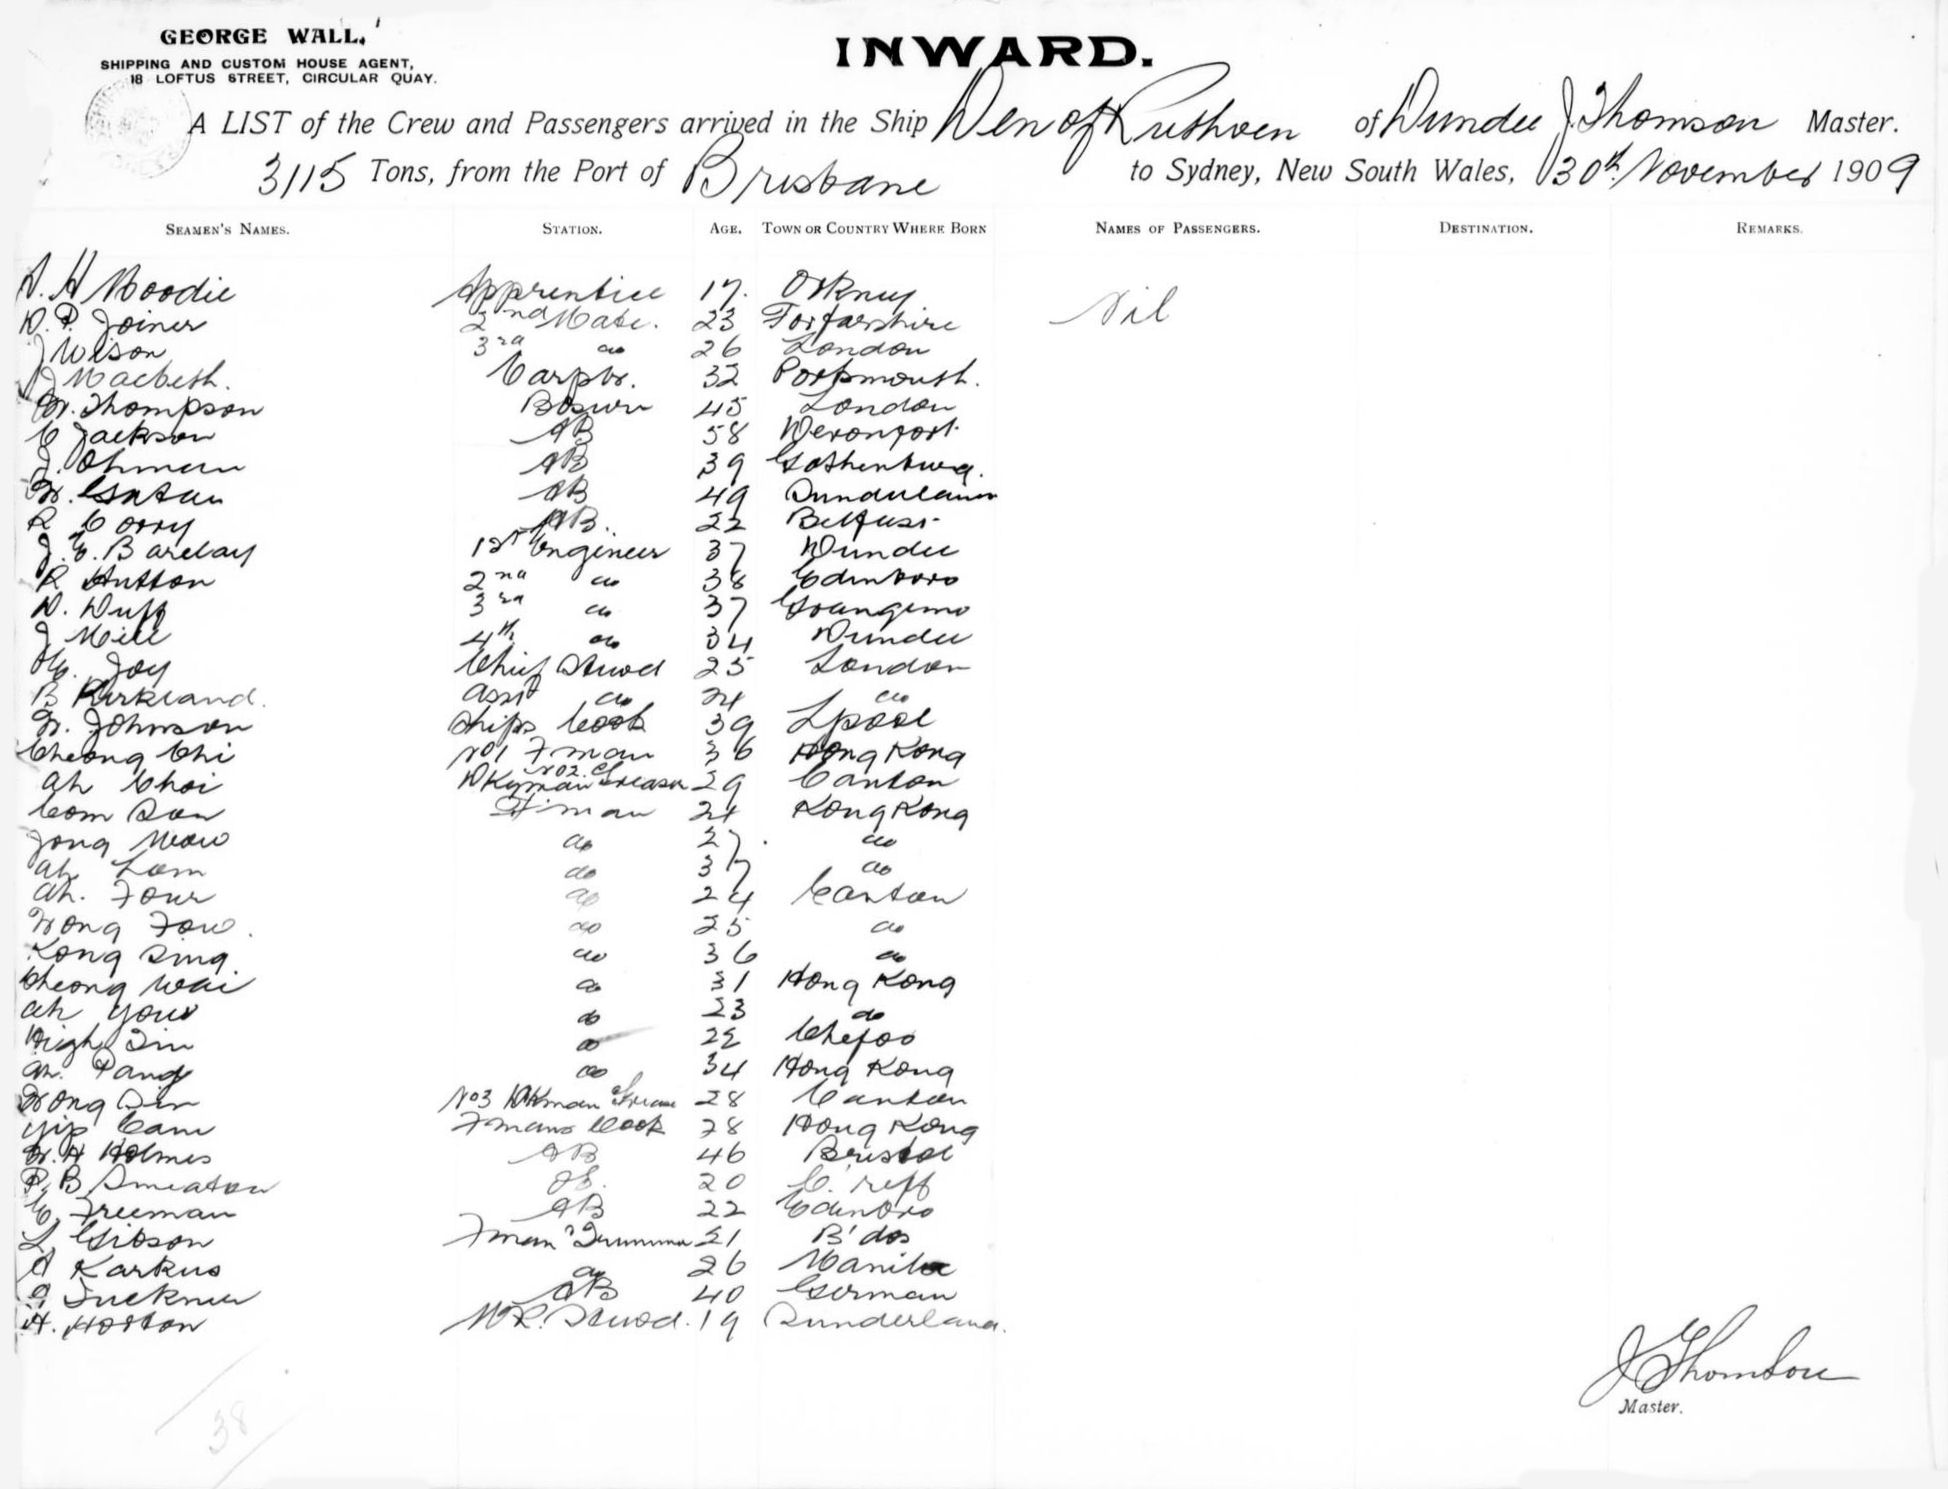 GEORGE WALL,
SHIPPING AND CUSTOM HOUSE AGENT,
18 LOFTUS STREET, CIRCULAR QUAY.
INWARD.
A LIST of the Crew and Passengers arrived in the Ship Den of Ruthven of Dundee J. Thomson Master.
3115 Tons, from the Port of Brisbane to Sydney, New South Wales, 30th November 1909
SEAMEN'S NAMES. STATION. AGE. TOWN OR COUNTRY WHERE BORN NAMES OF PASSENGERS. DESTINATION. REMARKS.
D. H Moodie Apprentice 17. Orkney Nil
D. P. Joiner 2nd Mate. 23 Forfarshire
J Wilson 3rd do 26 London
J Macbeth. Carptr. 32 Portsmouth.
W. Thompson Boswn 45 London
C Jackson AB 58 Devonport
J. Ohman AB 39 Gothenburg.
W. AB 49
R Corry AB. 22 Belfast
J. C. Barclay 1st Engineer 37 Dundee
R Hutton 2nd do 38 Edinboro
D. Duff 3rd do 37 Grangemo
J Mill 4th do 34 Dundee
Joy Chief Stewd 25 London
B Kirkland. Asst do 24 do
W. Johnson Ships Cook 39 Lpool
Cheong Chi No 1 Fman 36 Hong Kong
Ah Choi No 2. Dkyman Greaser 29 Canton
Com San Fman 24 Kong Kong
Jong Mow do 27. do
Ah Lam do 37 do
Ah. Four do 24 Canton
Wong Fow. do 25 do
Kong Sing do 36 do
Cheong Wai do 31 Hong Kong
Ah Yow do 23 do
High Tin do 22 Chefoo
Ah. Pang do 34 Hong Kong
Wong Sin No 3 Dkman Grease 28 Canton
Yip Cam Fmans Cook 28 Hong Kong
W. H Holmes AB 46 Bristol
P. B Smeaton OS. 20 C. reff
C. Freeman AB 22 Edinbro
L Gibson Fman Trimmer 21 B'dos
A Karkus do 26 Manila
Tuckner AB 40 German
H. Horton M.R. Stewd. 19 Sunderland.
J Thomson
Master.
38